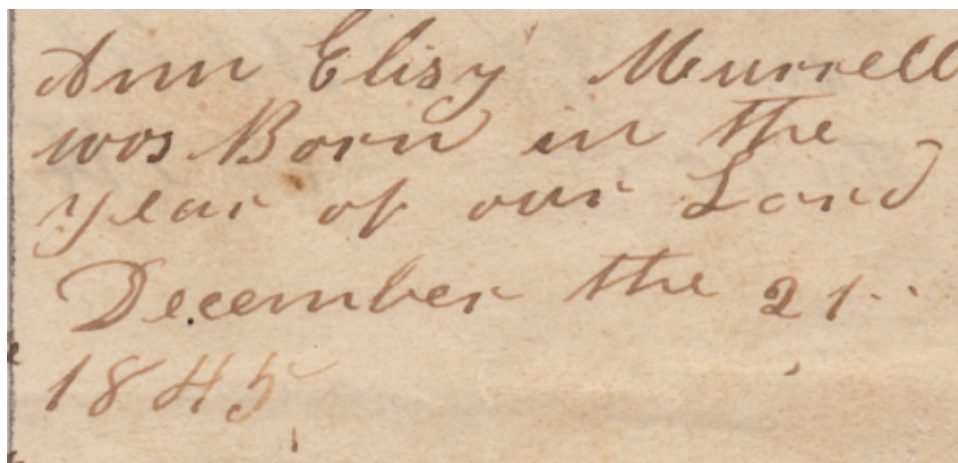 Ann Elisy Murrell
was Born in the
year of our Lord
December the 21
1845